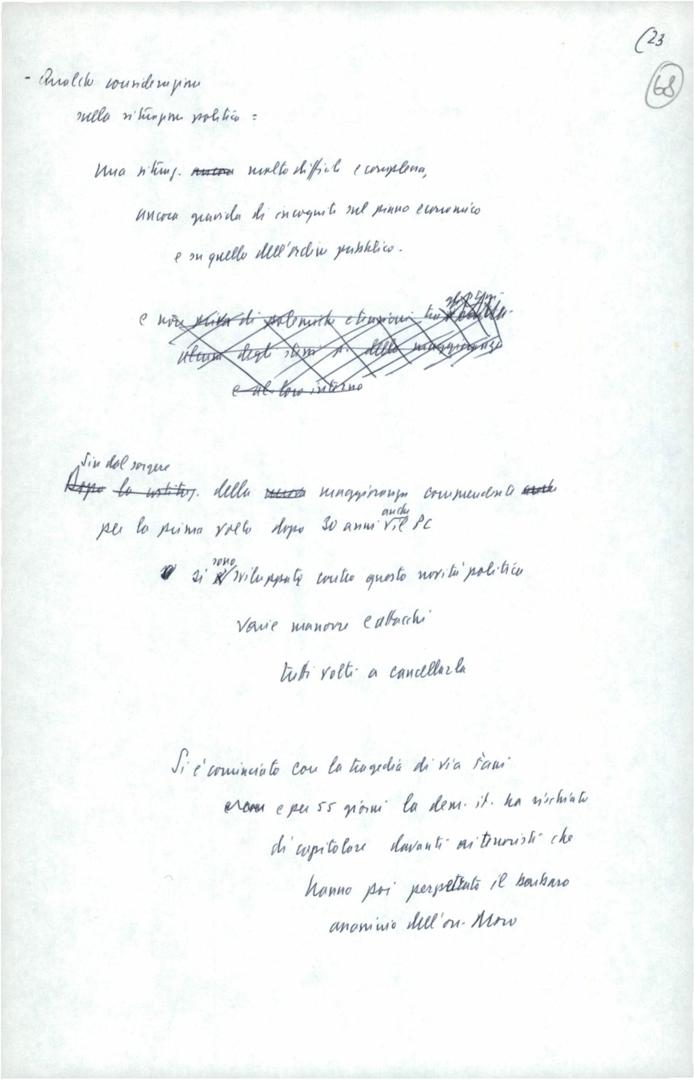 (23
68
- Qualche considerazione
sulla situazione politica =
Una situaz. ancora molto difficile e complessa,
ancora gravida di incognite sul piano economico
e su quello dell'ordine pubblico.
e non priva di polemiche e tensioni tra
alcuni degli stessi pi della maggioranza
e al loro interno
Sin dal sorgere
Dopo la costituz. della nuova maggioranza comprendente
anche
per la prima volta dopo 30 anni il PC
sono
si sviluppate contro questa novità politica
varie manovre e attacchi
tutti volti a cancellarla
Si è cominciato con la tragedia di via Fani
e per 55 giorni la dem. it. ha rischiato
di capitolare davanti ai terroristi che
hanno poi perpetrato il barbaro
assassinio dell'on. Moro